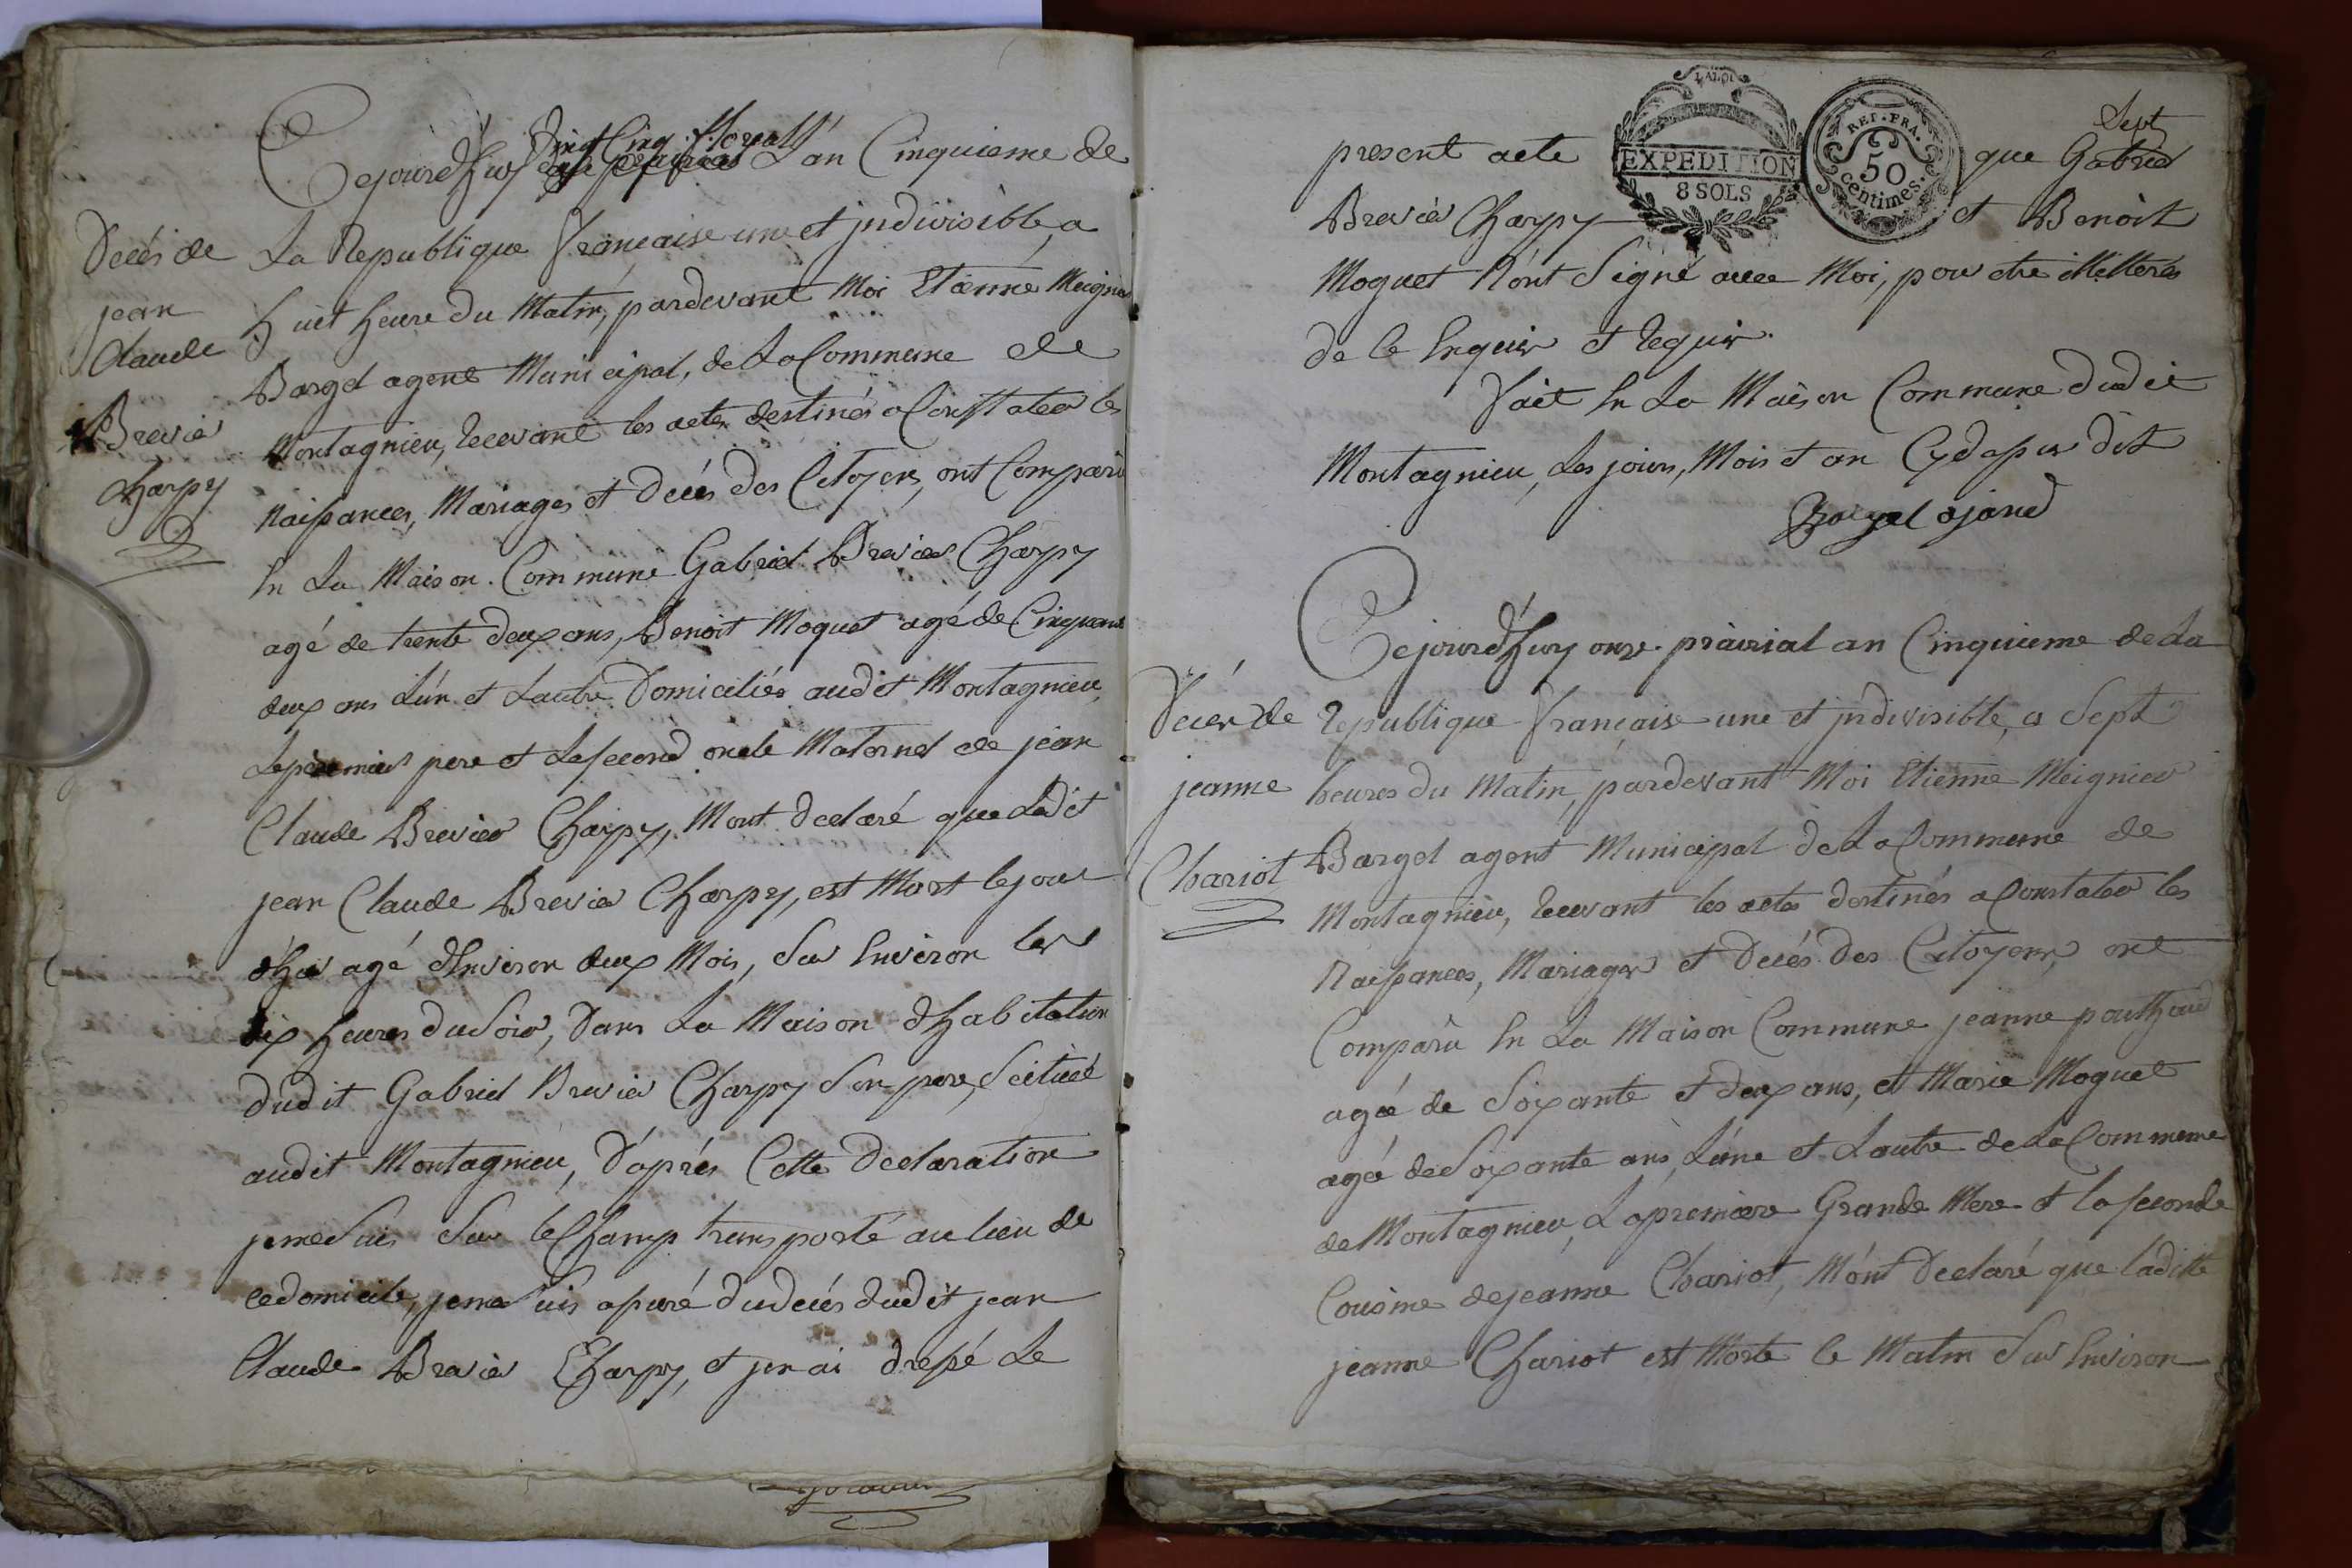 Vingt Cinq floreal
Cejourd'huy L'an Cinquieme de
La Republique Francaise une et jndivisible, a
huit heure du Matin, pardevant Moi Etienne Meignier
Bargel agent Municipal, de La Commune de
Montagnieu, Recevant les actes destinés a Constater les
Naissances, Mariages et Decés des Citoyens, ont Comparu
En La Maison Commune Gabriel Brevier Charpy
agé de trente deux ans, Benoit Moquet agé de Cinquante
deux ans L'un et L'autre Domiciliés audit Montagnieu,
Le premier pere et Le second oncle Maternel de jean
Claude Brevier Charpy, M'ont declaré que Ledit
jean Claude Brevier Charpy, est Mort le jour
d'hier agé d'Environ deux Mois, Sur Environ les
dix heures du Soir, Dans La Maison d'habitation
dudit Gabriel Brevier Charpy Son pere, Scituée
audit Montagnieu, D'après Cette Declaration
je me Suis Sur le Champ transporté au lieu de
ce domicile, je me Suis assuré du decés dudit jean
Claude Brevier Charpy, et j'en ai dressé Le
Decés de
jean
Claude
Brevier
Charpy
present acte que Gabriel
Sept
Brevier Charpy et Benoit
Moquet N'ont Signé avec Moi, pour etre illitterés
de ce Enquis et Requis.
Fait En La Maison Commune dudit
Montagnieu, Les jours, Mois et an Cydessus dit
Bargel ajand
LA LOI
EXPEDITION
8 SOLS
REP. FRA.
50
centimes.
Cejourd'huy onze prairial an Cinquieme de La
Republique Française une et jndivisible, a Sept
heures du Matin, pardevant Moi Etienne Meignier
Bargel agent Municipal de La Commune de
Montagnieu, Recevant les actes destinés a Constater les
Naissances, Mariages et Decés des Citoyens, ont
Comparu En La Maison Commune jeanne
agée de Soixante et deux ans, et Marie Moquet
agée de Soixante ans, L'une et L'autre de La Commune
de Montagnieu, La premiere Grande Mere et la seconde
Cousine de jeanne Chariot, M'ont Declaré que Laditte
jeanne Chariot est Morte le Matin Sur Environ
Decès de
jeanne
Chariot